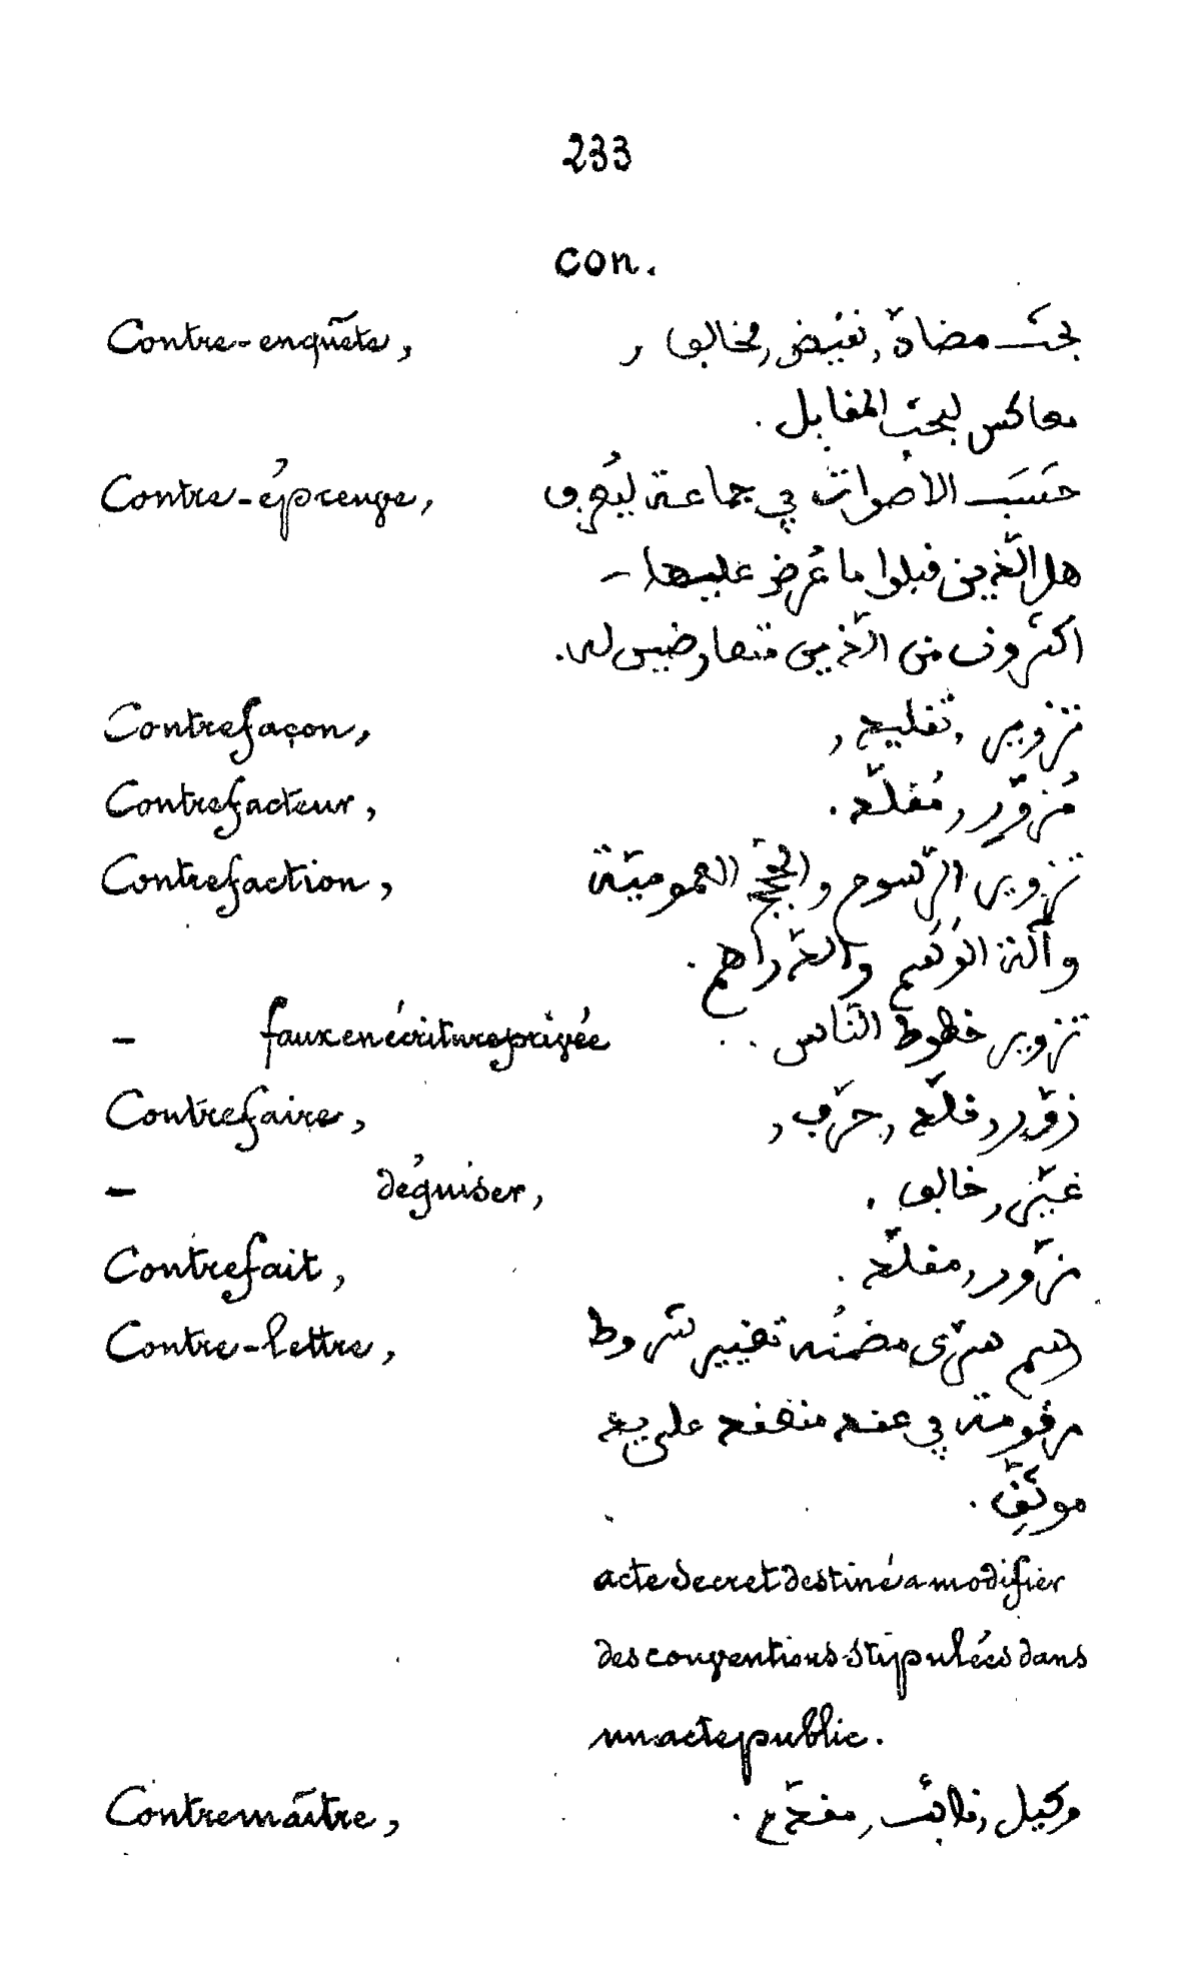 233
con.
Contre-enquête, بحث مضادّ, نفيض, مخالف,
معاكس لبحث المقابل.
Contre-épreuve, حَسَبَ الاصوات في جماعة ليُعرف
هل الّذين قبلوا ما عُرض عليها -
اكثرون من الّذين متعارضين له.
Contrefaçon, تزوير, تقليد,
Contrefacteur, مُزوّر, مُقلّد.
Contrefaction, تزوير الرّسوم والحجج العموميّة
وآلة الوَسَم والدّراهم.
— faux en écriture privée تزوير خطوط النّاس..
Contrefaire, زوّر, قلّد, حرّف,
— déguiser, غيّر, خالف.
Contrefait, مزوّر, مقلّد.
Contre-lettre, رسم سرّى مضمنُه تغيير شروط
مرقومة في عقد منعقد على يد
موثّق.
acte secret destiné a modifier
des conventions stipulées dans
un acte public.
Contremaître, وكيل, نائب, مقدّم.